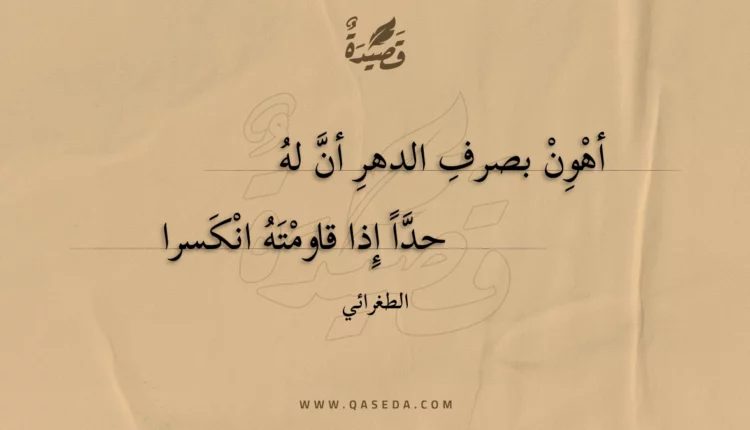 قَصِيْدَةٌ
أهْوِنْ بصرفِ الدهرِ أنَّ لهُ
حدَّاً إِذا قاومْتَهُ انْكَسرا
الطغرائي
WWW.QASEDA.COM